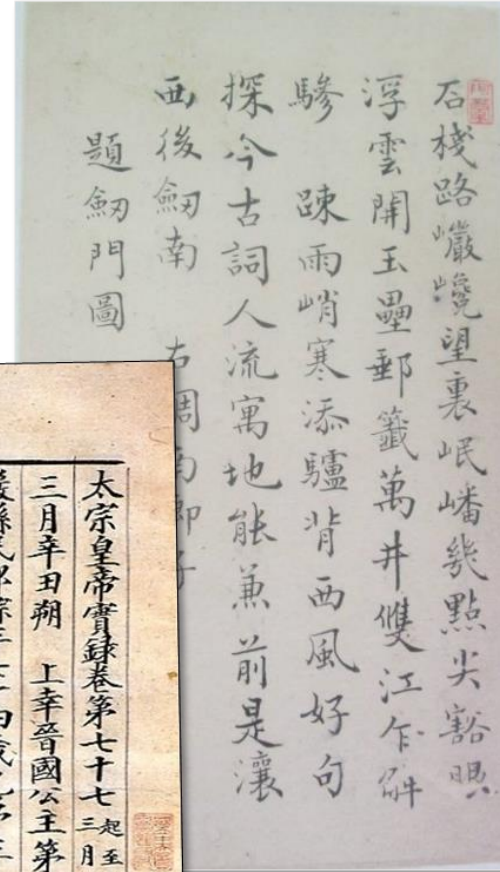 石棧路巖巉望裏岷嶓幾點尖豁眼
浮雲開玉壘郵籤萬井雙江乍解
驂 疎雨峭寒添驢背西風好句
探今古詞人流寓地能兼前是瀼
西後劒南 右調南鄉子
題劒門圖
太宗皇帝實録卷第七十七
三月辛丑朔 上幸晉國公主第